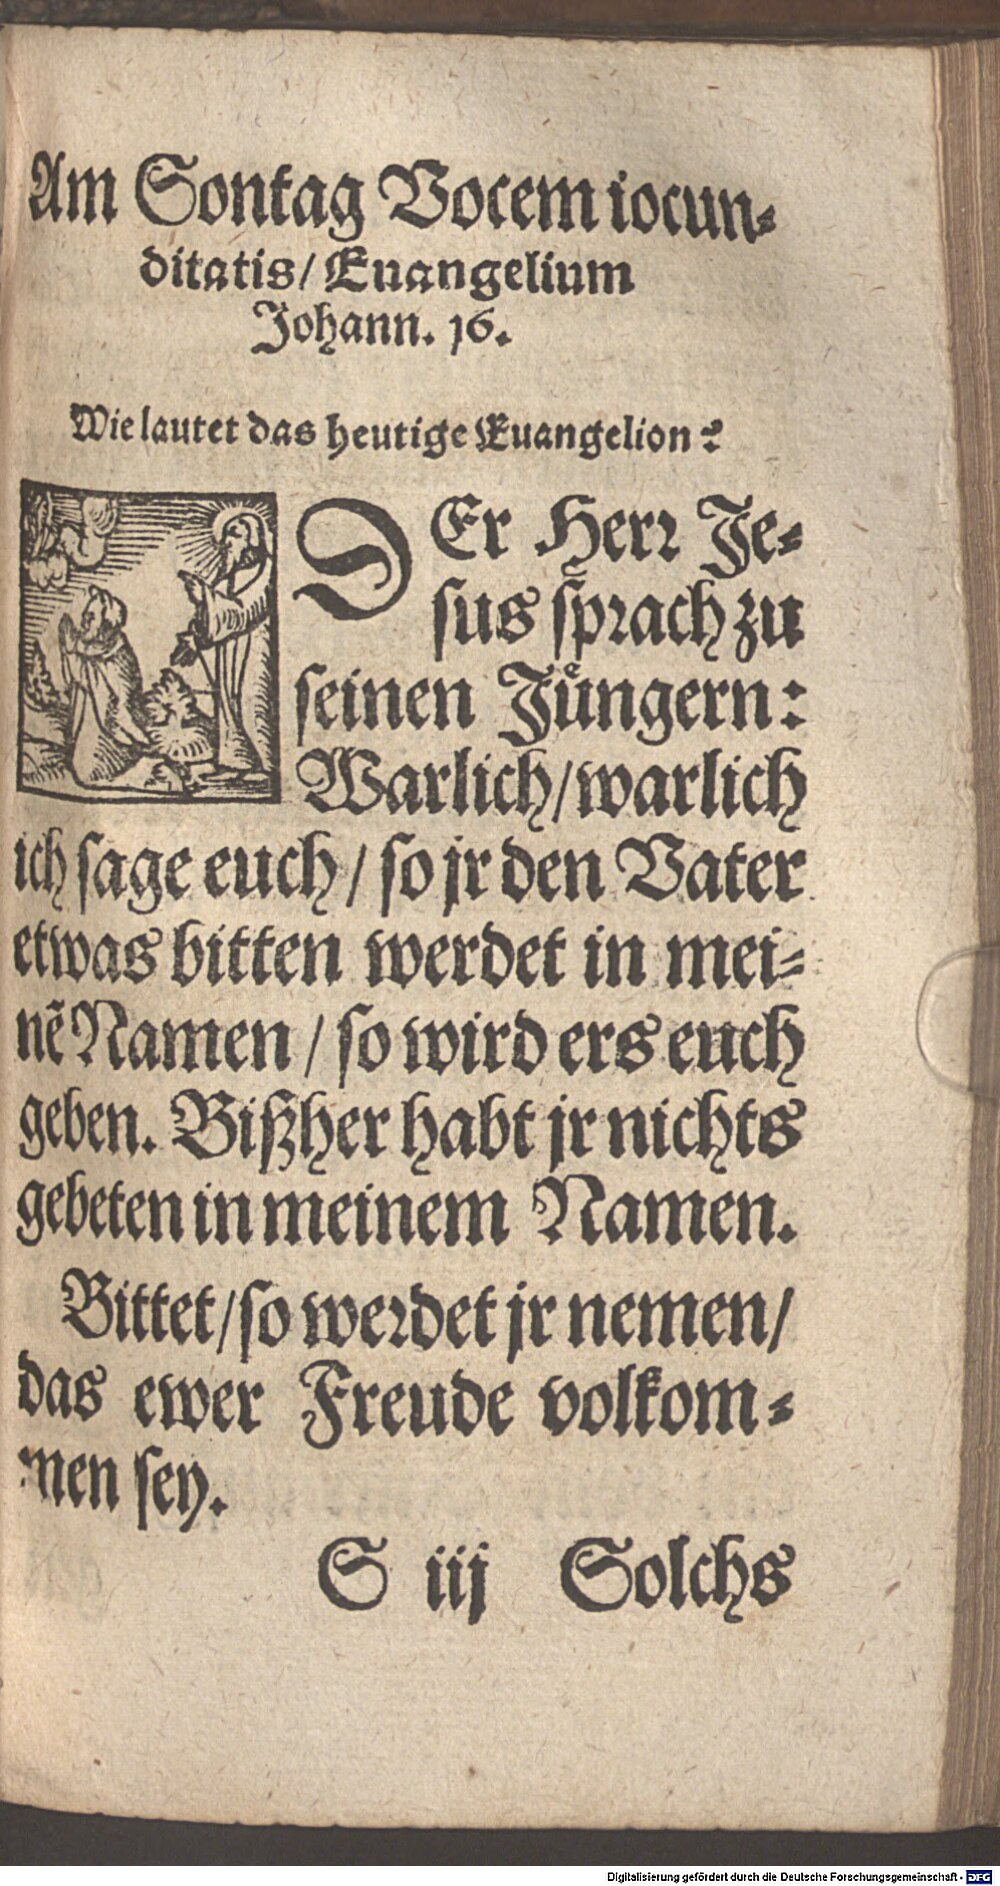 Am Sontag Vocem iocun-
ditatis/ Euangelium
Johann. 16.
Wie lautet das heutige Euangelion?
DEr Herr Je-
sus sprach zu
seinen Jüngern:
Warlich/ warlich
ich sage euch/ so jr den Vater
etwas bitten werdet in mei-
nẽ Namen/ so wird ers euch
geben. Bißher habt jr nichts
gebeten in meinem Namen.
Bittet/ so werdet jr nemen/
das ewer Freude volkom-
men sey.
S iij Solchs
Digitalisierung gefördert durch die Deutsche Forschungsgemeinschaft - DFG